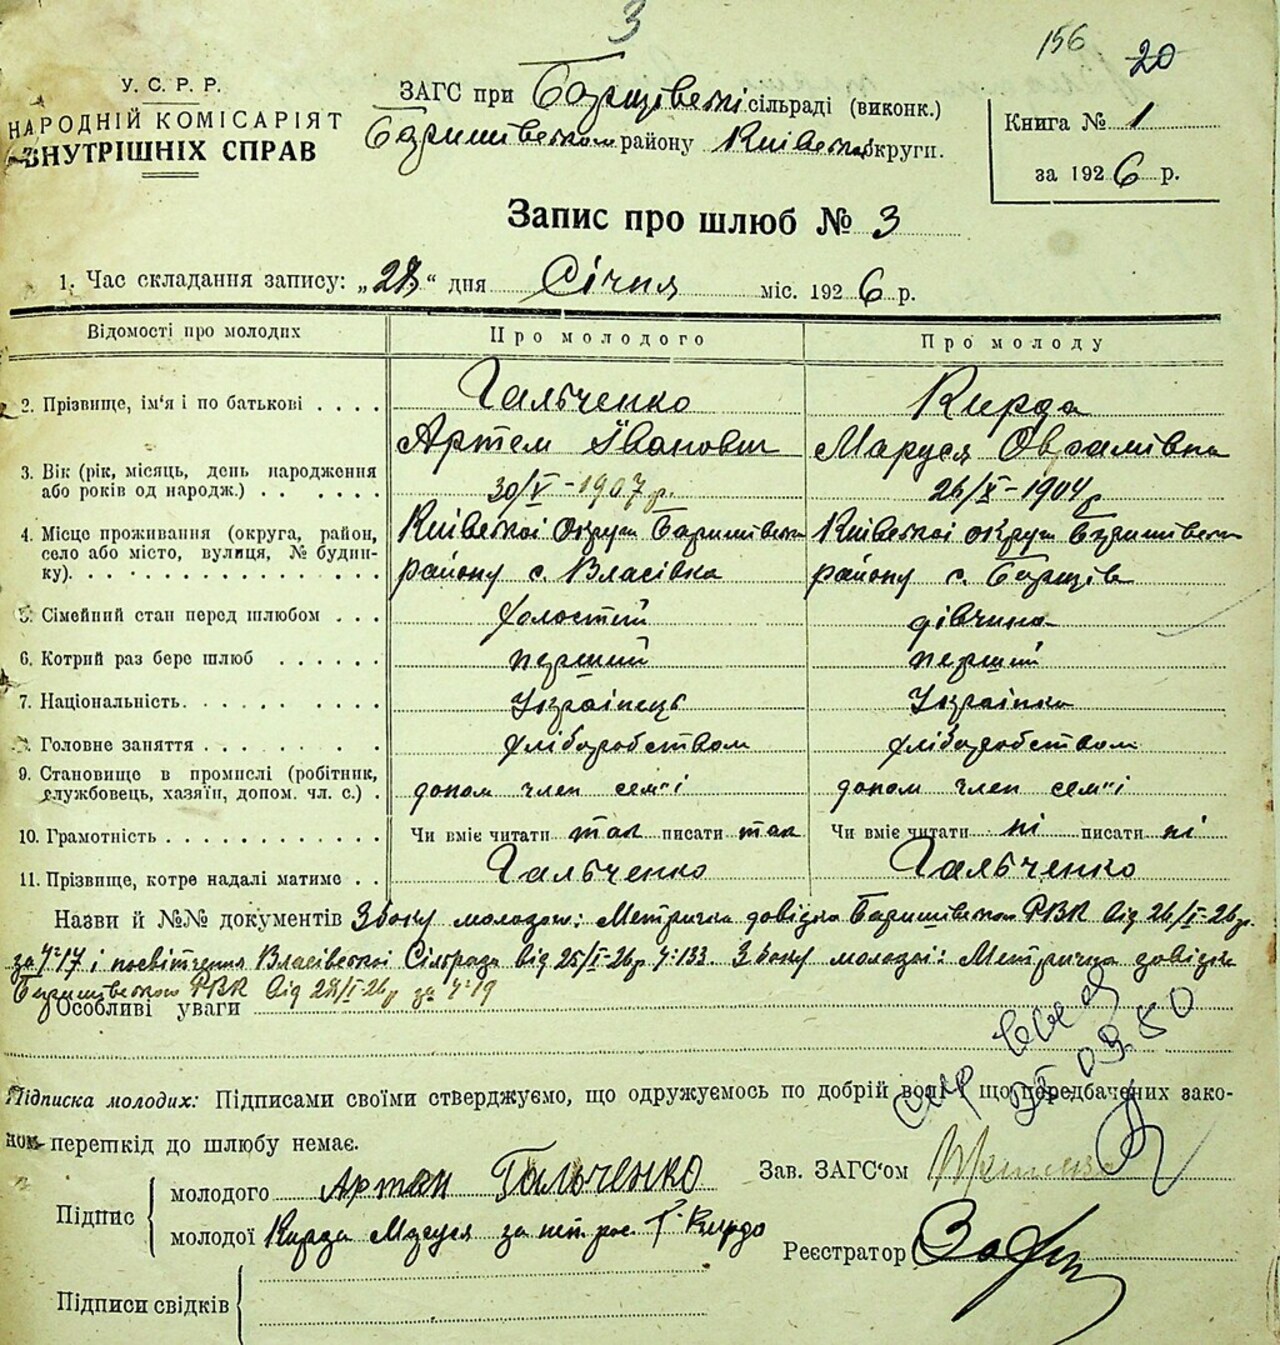 3
156 20
У. С. Р. Р.
НАРОДНІЙ КОМІСАРІЯТ
ВНУТРІШНІХ СПРАВ
ЗАГС при Борщівській сільраді (виконк.)
Баришивськом району Київської округи.
Книга № 1
за 1926 р.
Запис про шлюб № 3
1. Час складання запису: „28“ дня Січня міс. 1926 р.
Відомості про молодих Про молодого Про молоду
2. Прізвище, ім'я і по батькові . . . . Гальченко Кирда
Артем Іванович Маруся Оврамівна
3. Вік (рік, місяць, день народження
або років од народж.) . . . . . 30/V-1907 р. 26/X-1904 р
4. Місце проживання (округа, район, Київськоі Округи Баришівськ Київськоі округи Баришівськ
село або місто, вулиця, № будин-
ку). . . . . . . . . . . . . . . . району с. Власівка району с. Борщів
5. Сімейний стан перед шлюбом . . . холостий дівчина
6. Котрий раз бере шлюб . . . . . . перший перший
7. Національність. . . . . . . . . . Українець Українка
8. Головне заняття . . . . . . . . хліборобством хліборобством
9. Становище в промислі (робітник,
службовець, хазяїн, допом. чл. с.) . допом член сем"і допом член сем"і
10. Грамотність . . . . . . . . . . . . Чи вміє читати так писати так Чи вміє читати ні писати ні
11. Прізвище, котре надалі матиме . . Гальченко Гальченко
Назви й №№ документів З боку молодого: Метрична довідка Баришівськом РВК від 26/I-26 р.
за №17 і посвітчення Власівськоі Сільради від 25/I-26 р №133. З боку молодоі: Метрична довідка
Баришівськом РВК від 28/I-26 р за №19
Особливі уваги
03.80
Підписка молодих: Підписами своїми стверджуємо, що одружуємось по добрій волі і що передбачених зако-
ном перешкід до шлюбу немає.
Підпис
молодого Артем Гальченко
Зав. ЗАГС'ом
молодої Кирда Маруся за Кирдо
Реєстратор
Підписи свідків